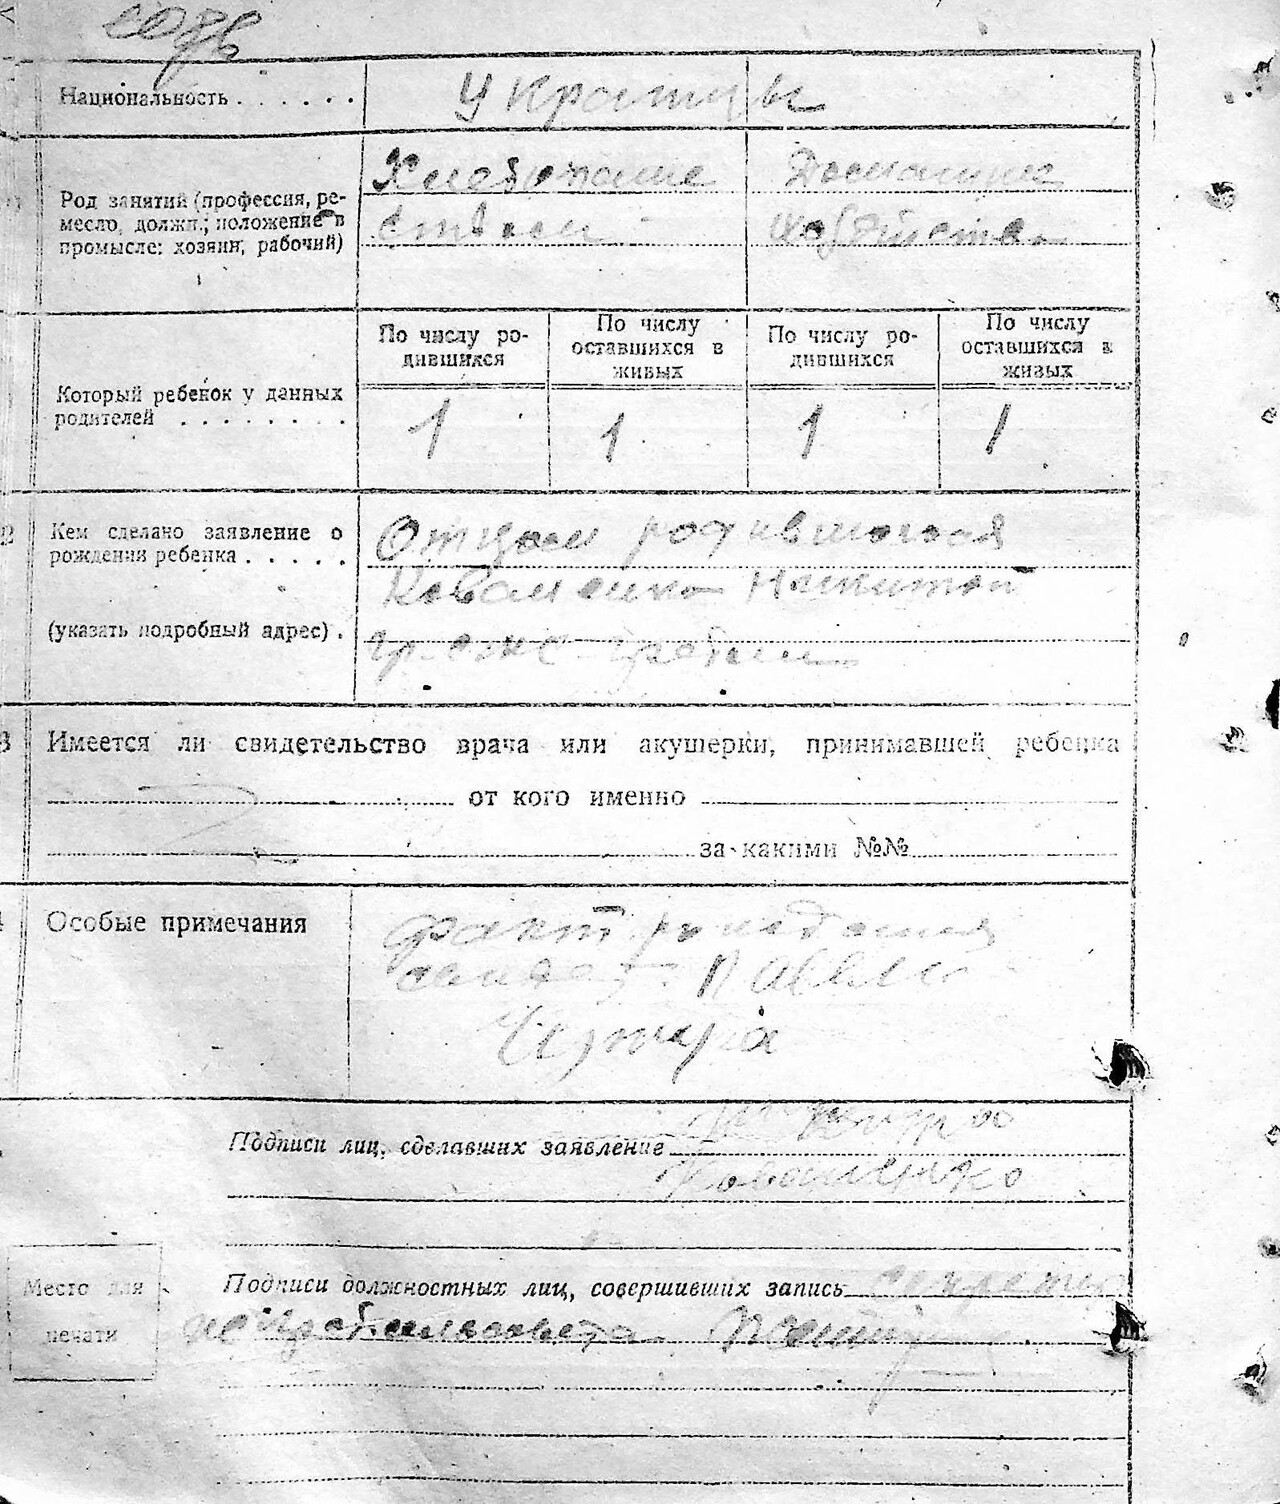 Национальность . . . . . . Украинцы
Род занятий (профессия, ре-
месло, должн.; положение в
промысле: хозяин, рабочий)
Хлебопаше
ством
Домашнее
хозяйство
По числу ро-
дившихся
По числу
оставшихся в
живых
По числу ро-
дившихся
По числу
оставшихся в
живых
Который ребенок у данных
родителей . . . . . . . .
1 1 1 1
Кем сделано заявление о
рождении ребенка . . . . .
(указать подробный адрес) .
Отцом родившогося
Коваленко Никитой
3 Имеется ли свидетельство врача или акушерки, принимавшей ребенка
от кого именно
за какими №№
Особые примечания
факт рождения
Павел
Подписи лиц, сделавших заявление
Коваленко
Место для
печати
Подписи должностных лиц, совершивших запись секрета